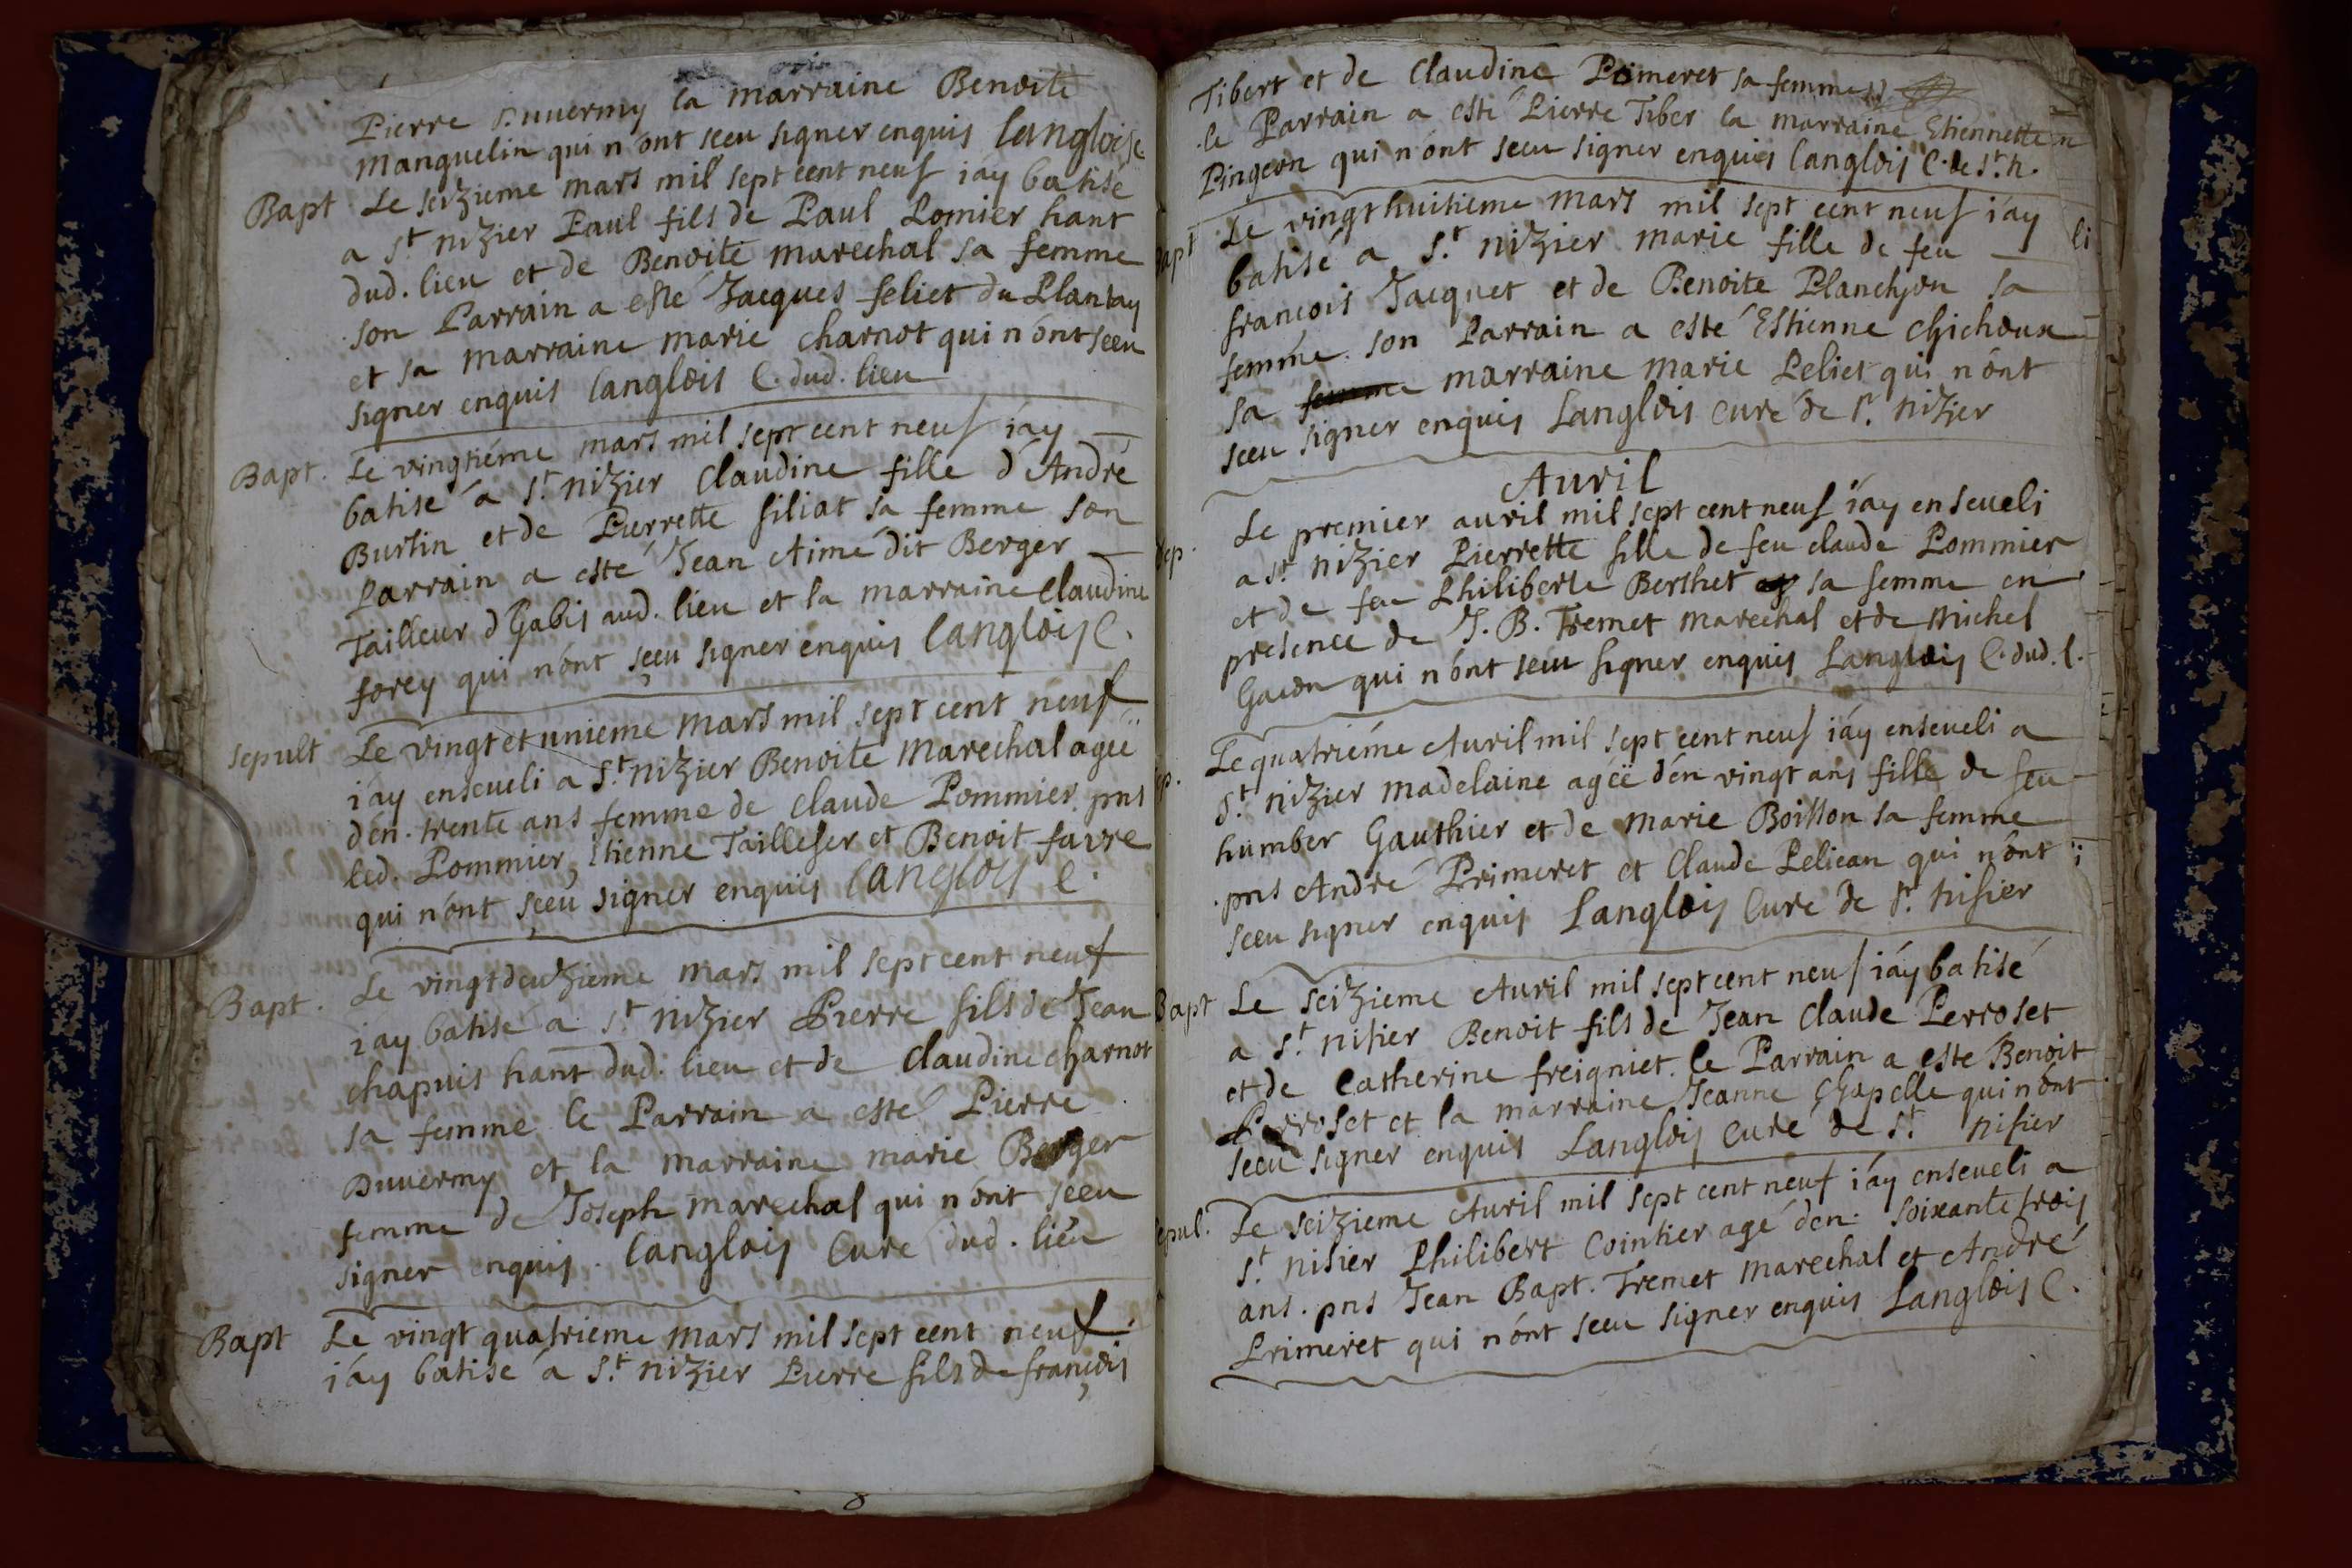 Pierre Duuermy la marraine Benoite
Manguelin qui n'ont sceu signer enquis Langlois C
Bapt Le seizieme mars mil sept cent neuf i'ay batisé
a St nizier Paul fils de Paul Lomier hant
dud. lieu et de Benoite marechal sa femme
son Parrain a esté Jacques feliet du Plantay
et sa marraine marie charnot qui n'ont sceu
signer enquis Langlois C. dud. lieu
Bapt. Le vingtiéme mars mil sept cent neuf i'ay
batisé a St nizier Claudine fille d'André
Burtin et de Pierrette filiat sa femme son
Parrain a esté Jean Aimé dit Berger
Tailleur d'habis aud. lieu et la marraine Claudine
forey qui n'ont sçeu signer enquis Langlois C.
sepult Le vingt et unieme mars mil sept cent neuf
i'ay enseueli a St nizier Benoite Marechal ageë
d'en. trente ans femme de claude Pommier pns
led. Pommier, Etienne Taillefer et Benoit favre
qui n'ont sçeu signer enquis Langlois C.
Bapt. Le vingt deuzieme mars mil sept cent neuf
i'ay batisé a St nizier Pierre fils de Jean
chapuis hant dud. lieu et de Claudine charnot
sa femme le Parrain a esté Pierre
Duuermy et la marraine marie Berger
femme de Joseph marechal qui n'ont sceu
signer enquis. Langlois Curé dud. lieu
Bapt Le vingt quatrieme mars mil sept cent neuf
i'ay batisé a St nizier Pierre fils de françois
Tibert et de Claudine Primeret sa femme
le Parrain a esté Pierre Tiber la marraine Etiennette
Pingeon qui n'ont sceu signer enquis Langlois C. de St. n.
Bapt Le vingt huitieme mars mil sept cent neuf i'ay
batisé a St. nizier marie fille de feu
francois Jacquet et de Benoite Planchon sa
femme. son Parrain a esté Estienne chichoux
sa femme marraine marie Peliet qui n'ont
sceu signer enquis Langlois Curé de St. nizier
Auril
Sep. Le premier auril mil sept cent neuf i'ay enseueli
a St. nizier Pierrette fille de feu claude Pommier
et de feu Philiberte Berthet sa femme en
presence de J. B. Tremet marechal et de michel
Gacon qui n'ont sceu signer enquis Langlois C. dud. l.
Sep. Le quatriéme Auril mil sept cent neuf i'ay enseueli a
St. nizier madelaine ageë d'en vingt ans fille de feu
humber Gauthier et de marie Boisson sa femme
pns André Primeret et Claude Pelican qui n'ont
sceu signer enquis Langlois Curé de St. nisier
Bapt Le seizieme Auril mil sept cent neuf i'ay batisé
a St. nisier Benoit fils de Jean Claude Perroset
et de Catherine freigniet. le Parrain a esté Benoit
Perroset et la marraine Jeanne Chapelle qui n'ont
sceu signer enquis Langlois Curé de St. nisier
Sepul. Le seizieme Auril mil sept cent neuf i'ay enseueli a
St. nisier Philibert Cointier agé d'en. soixante trois
ans. pns Jean Bapt. Tremet marechal et André
Primeret qui n'ont sceu signer enquis Langlois C.